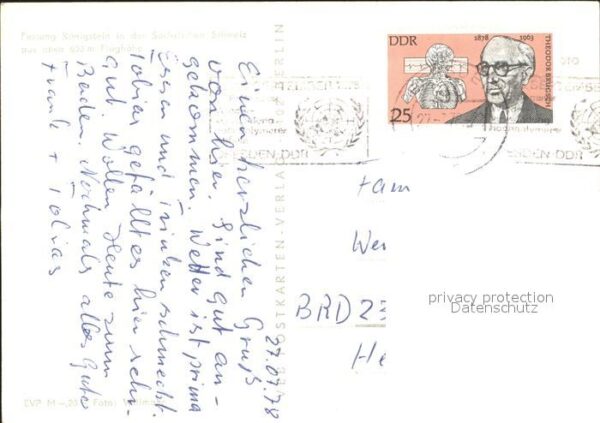 Festung Königstein in der Sächsischen Schweiz
aus etwa 600 m Flughöhe
27.07.78
Einen herzlichen Gruß
von hier. Sind gut an-
gekommen. Wetter ist prima
Essen und Trinken schmeckt.
Tobias gefällt es hier sehr
gut. Wollen heute zum
Baden. Nochmals alles Gute
Frank + Tobias
EVP M -,20 Foto:
POSTKARTEN-VERLAG BERLIN
DDR
1878 1963
THEODOR BRUGSCH
25
Fam
We
BRD 23
He
privacy protection
Datenschutz